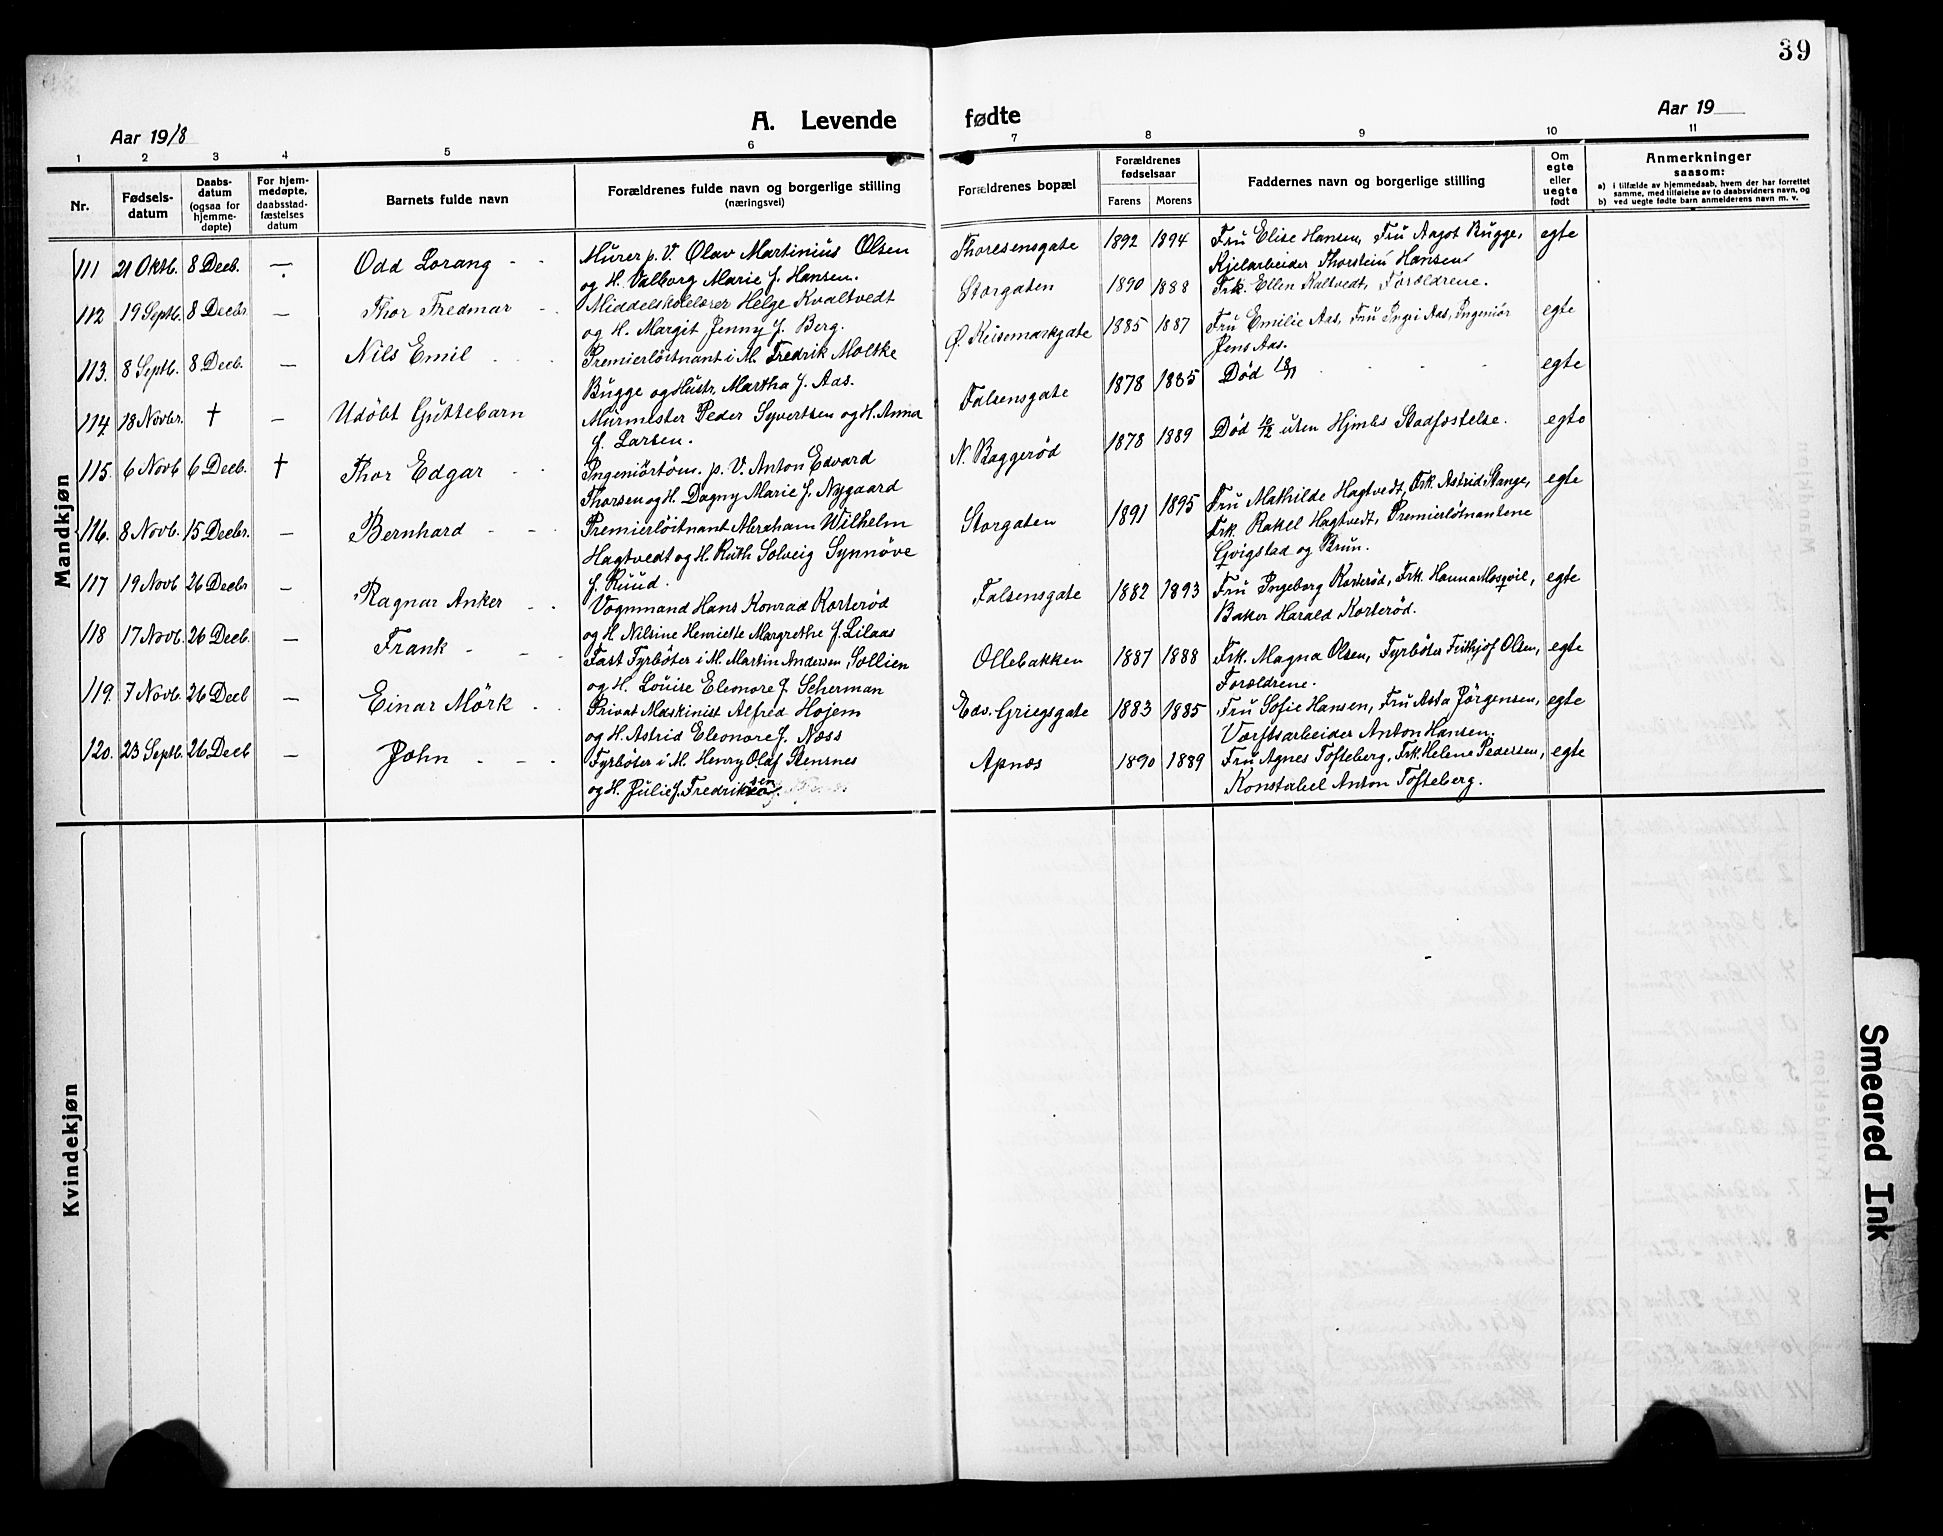 39
Aar 1918
A. Levende
fødte
Aar 19
1 2 3 4 5 6 7 8 9 10 11
Nr.
Fødsels-
datum
Daabs-
datum
(ogsaa for
hjemme-
døpte)
For hjem-
medøpte,
daabsstad-
fæstelses
datum
Barnets fulde navn
Forældrenes fulde navn og borgerlige stilling
(næringsvei)
Forældrenes bopæl
Forældrenes
fødselsaar
Farens Morens
Faddernes navn og borgerlige stilling
Om
egte
eller
uegte
født
Anmerkninger
saasom:
a) i tilfælde av hjemmedaab, hvem der har forrettet
samme, med tilføielse av to daabsvidners navn, og
b) ved uegte fødte barn anmelderens navn m. v.
Mandkjøn
111 21 Oktb. 8 Decb. — Odd Lorang - -
Murer p. V. Olav Martinius Olsen
og H. Valborg Marie f. Hansen.
Thoresensgate 1892 1894
Fru Elise Hansen, Fru Aagot Bugge,
Kjelarbeider Thorstein Hansen
egte
112 19 Septb. 8 Decbr — Thor Fredmar - -
Middelskolelærer Helge Kvaltvedt
og H. Margit Jenny f. Berg.
Storgaten 1890 1888
Frk. Ellen Kaltvedt, Forældrene.
113. 8 Septb. 8 Decb. — Nils Emil - - -
Premierløitnant i M. Fredrik Moltke
Bugge og Hustr. Martha f. Aas.
Ø. Keisemarkgate 1885 1887
Fru Emilie Aas, Fru Ingri Aas, Ingeniør
Jens Aas.
egte
114. 18 Novbr. † — Udöbt Guttebarn
Murmester Peder Syvertsen og H. Anna
f. Larsen.
Falsensgate 1878 1885
Død 18/11
egte
115. 6 Novb 6 Decb. † Thor Edgar - -
Ingeniörtöm. p. V. Anton Edvard
Thorsen og H. Dagny Marie f. Nygaard
N. Baggerød 1878 1889
Død 10/12 uten Hjmbs Stadfæstelse.
egte
116. 8 Novb. 15 Decbr. — Bernhard - - -
Premierløitnant Abraham Wilhelm
Hagtvedt og H. Ruth Solveig Synnöve
f. Ruud.
Storgaten 1891 1895
Fru Mathilde Hagtvedt, Frk. Astrid Stange,
Frk. Rakel Hagtvedt, Premierløitnantene
Gvigstad og Brun.
egte
117 19 Novb 26 Decbr — Ragnar Anker - -
Vognmand Hans Konrad Korterød
og H. Nilsine Henriette Margrethe f. Lilaas
Falsensgate 1882 1893
Fru Ingeborg Korterød, Frk. Hanna Mosqvil,
Baker Harald Korterød.
egte
118 17 Novb. 26 Decb. — Frank - - -
Fast Fyrböter i M. Martin Andersen Sollien
og H. Louise Elenore f. Scherman
Ollebakken 1887 1888
Frk. Magna Olsen, Fyrböter Frithjof Olsen,
Forældrene.
egte
119. 7 Novb. 26 Decb — Einar Mörk - -
Privat Maskinist Alfred Hojem
og H. Astrid Eleonore f. Næss
Edv. Griegsgate 1883 1885
Fru Sofie Hansen, Fru Asta Jörgensen,
Værftsarbeider Anton Hansen.
egte
120. 23 Septb. 26 Decb — John - - -
Fyrböter i M. Henry Olaf Stensnes
og H. Julie f. Fredriksen
Apnæs 1890 1889
Fru Agnes Tofteberg, Frk. Helene Pedersen,
Konstabel Anton Tofteberg.
egte
Kvindekjøn
Smeared Ink